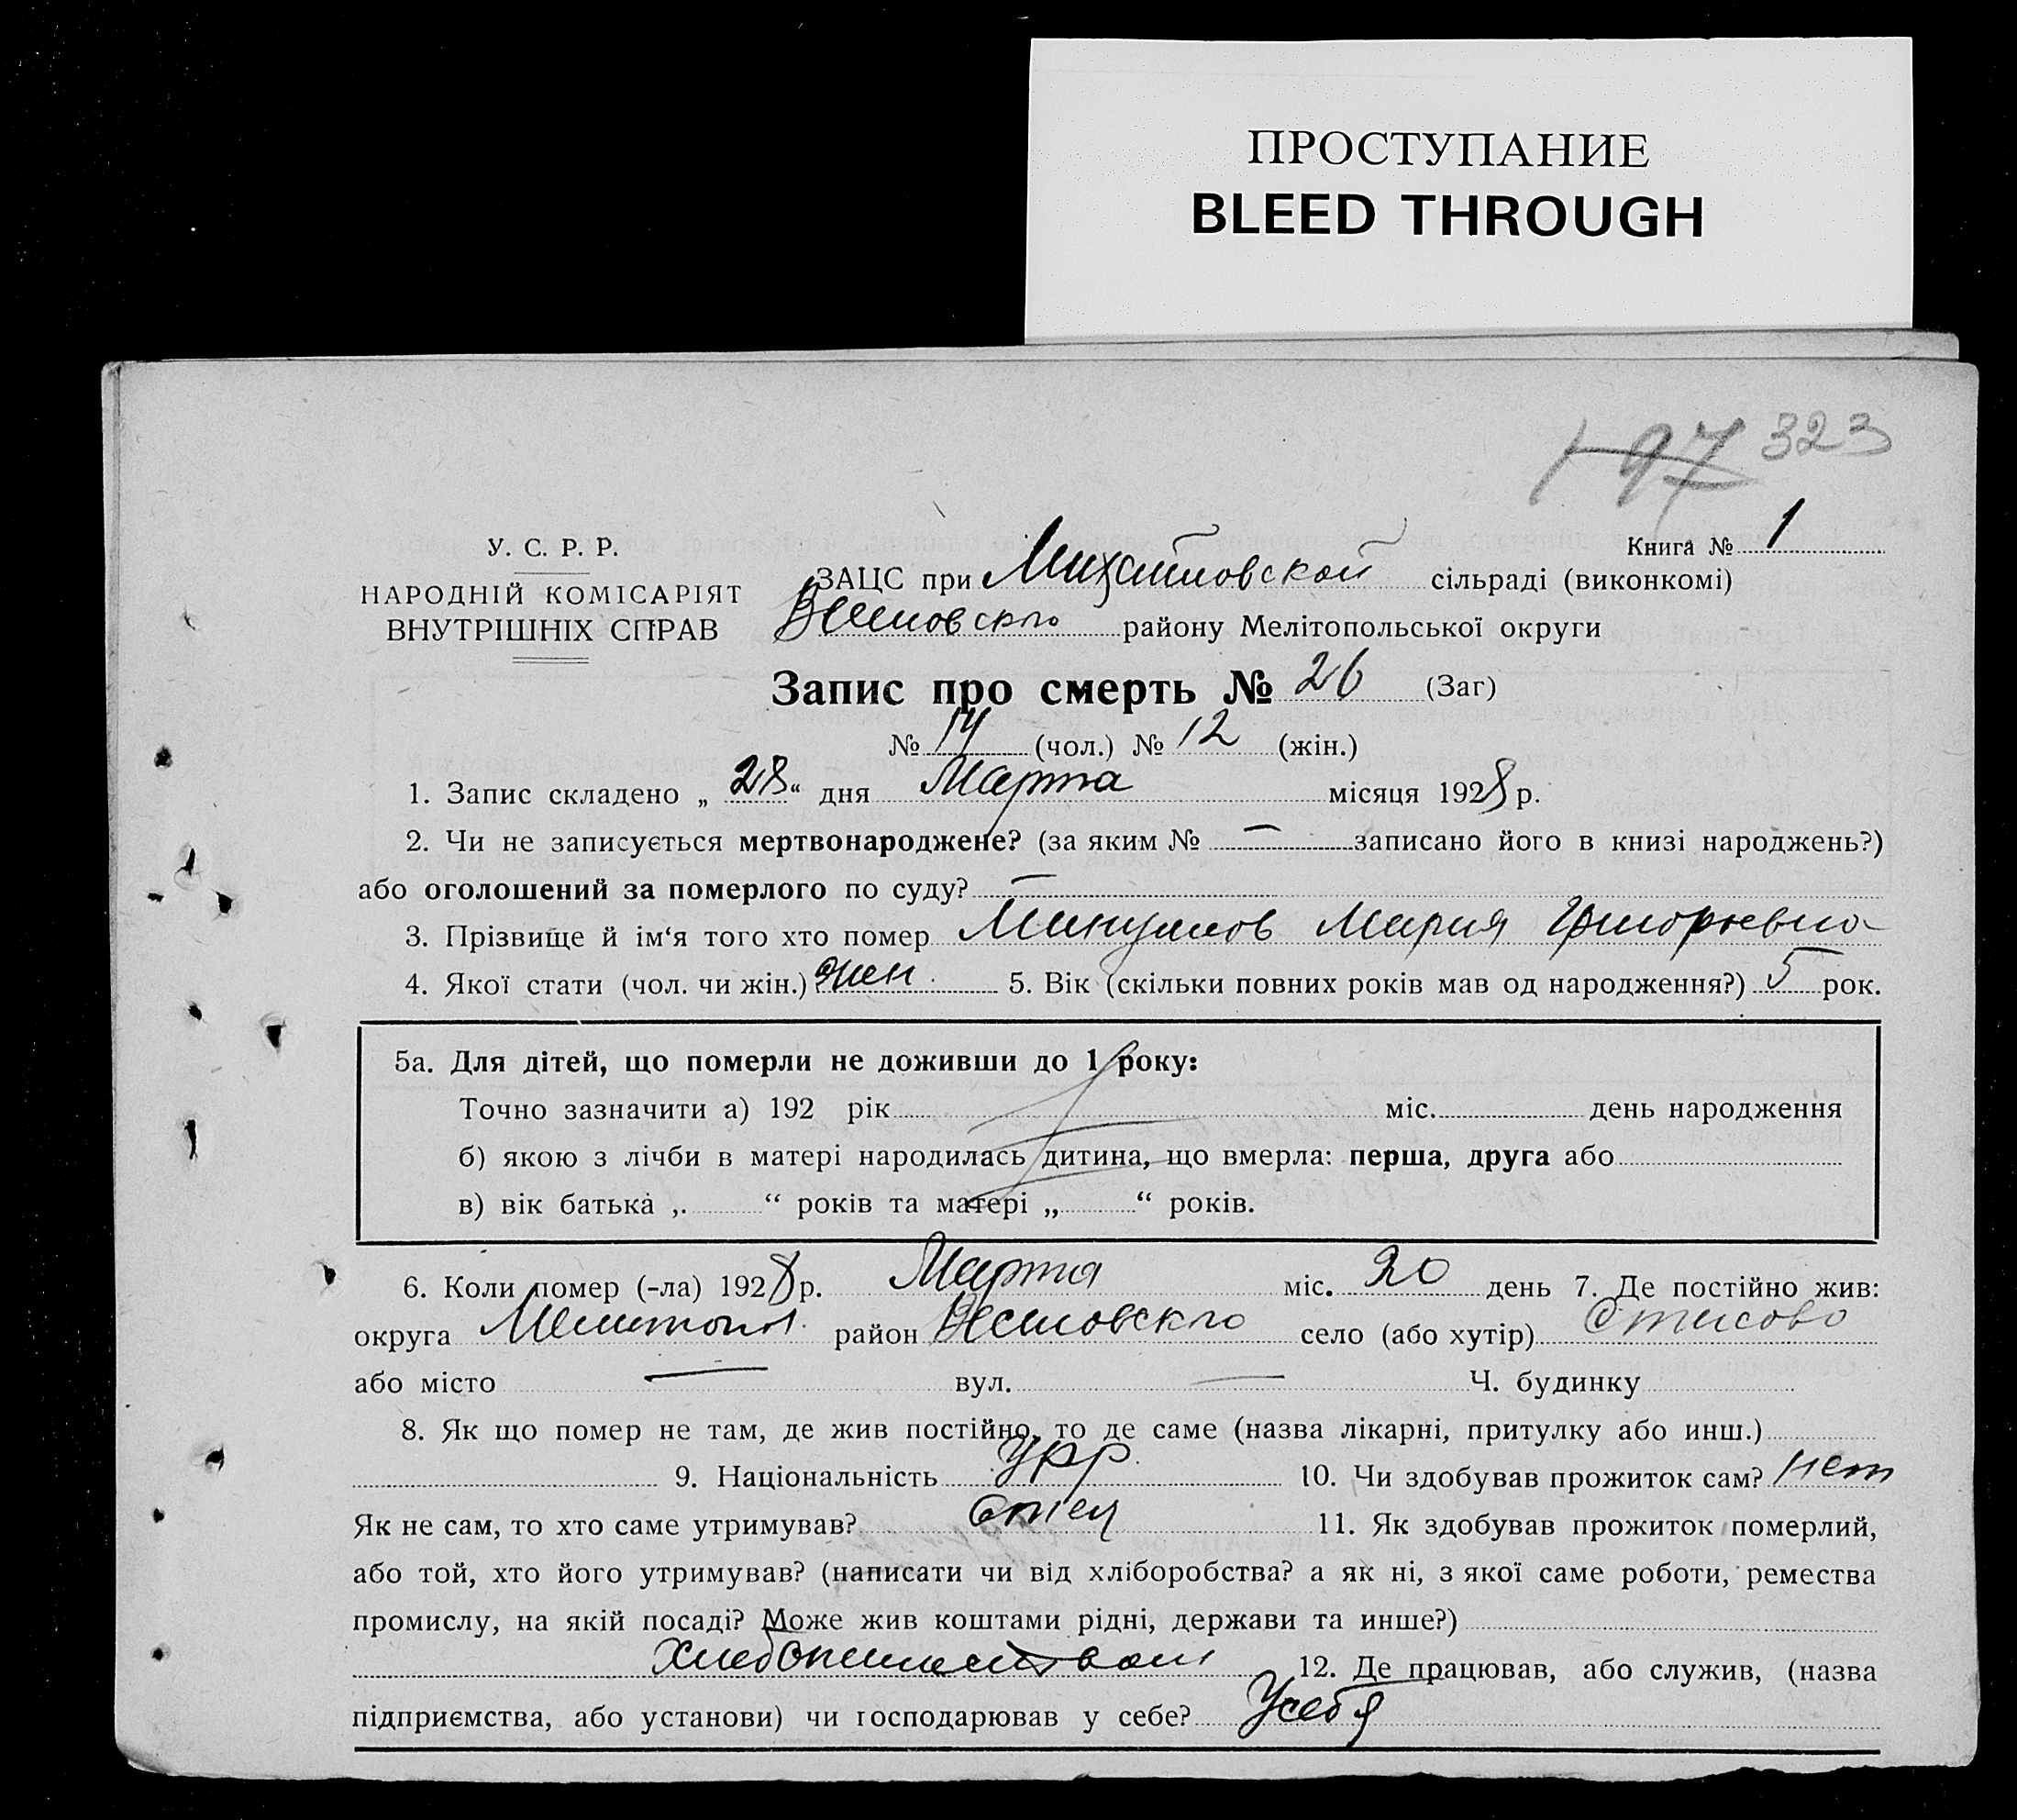 ПРОСТУПАНИЕ
BLEED THROUGH
197 323
У. С. Р. Р.
НАРОДНІЙ КОМІСАРІЯТ
ВНУТРІШНІХ СПРАВ
Книга № 1
ЗАЦС при Михайловской сільраді (виконкомі)
району Мелітопольської округи
Запис про смерть № 26 (Заг)
№ 14 (чол.) № 12 (жін.)
1. Запис складено „ 28 “ дня Марта місяця 1928 р.
2. Чи не записується мертвонароджене? (за яким № — записано його в книзі народжень?)
або оголошений за померлого по суду? —
3. Прізвище й ім‘я того хто помер Мария Григорьевна
4. Якої стати (чол. чи жін.) жен. 5. Вік (скільки повних років мав од народження?) 5 рок.
5а. Для дітей, що померли не доживши до 1 року:
Точно зазначити а) 192 рік міс. день народження
б) якою з лічби в матері народилась дитина, що вмерла: перша, друга або
в) вік батька „ “ років та матері „ “ років.
6. Коли помер (-ла) 1928 р. Марта міс. 20 день 7. Де постійно жив:
округа Мелитопол. район Веселовскго село (або хутір)
або місто — вул. — Ч. будинку
8. Як що помер не там, де жив постійно, то де саме (назва лікарні, притулку або инш.)
9. Національність Укр. 10. Чи здобував прожиток сам? нет
Як не сам, то хто саме утримував? Отец 11. Як здобував прожиток померлий,
або той, хто його утримував? (написати чи від хліборобства? а як ні, з якої саме роботи, ремества
промислу, на якій посаді? Може жив коштами рідні, держави та инше?)
Хлебопашеством 12. Де працював, або служив, (назва
підприємства, або установи) чи господарював у себе? У себя